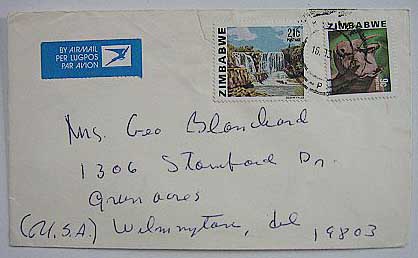 BY AIRMAIL
PER LUGPOS
PAR AVION
ZIMBABWE
21c
ZIMBABWE
Mrs. Geo Blanchard
1306 Stamford Dr.
Green acres
(U.S.A.) Wilmington, Del 19803